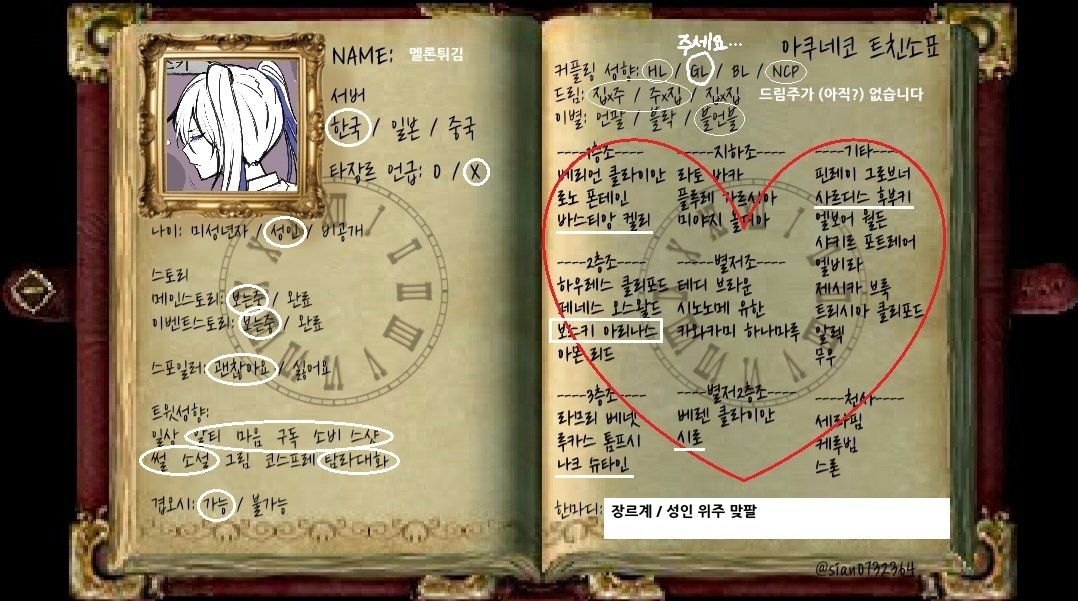 NAME: 멜론튀김
서버
한국 / 일본 / 중국
타장르 언급: O / X
나이: 미성년자 / 성인 / 비공개
스토리
메인스토리: 보는중 / 완료
이벤트스토리: 보는중 / 완료
스포일러: 괜찮아요 / 싫어요
트윗성향:
일상 알티 마음 구독 소비 스샷
썰 소설 그림 코스프레 탐라대화
겹오시: 가능 / 불가능
아쿠네코 트친소표
주세요...
커플링 성향: HL / GL / BL / NCP
드림: 집x주 / 주x집 / 집x집 드림주가 (아직?) 없습니다
이별: 언팔 / 블락 / 블언블
----1층조----
베리언 클라이안
로노 폰테인
바스티앙 켈리
----2층조----
하우레스 클리포드
페네스 오스왈드
보스키 아리나스
아몬 리드
----3층조----
라므리 베넷
루카스 톰프시
나크 슈타인
----지하조----
라토 바카
플루레 가르시아
미야지 올디아
----별저조----
테디 브라운
시노노메 유한
카와카미 하나마루
----별저2층조----
베렌 클라이안
시로
----기타----
핀레이 그로브너
사르디스 후부키
엘보어 월든
샤키르 포트레어
엘비라
제시카 브룩
트리시아 클리포드
알렉
무우
----천사----
세라핌
케루빔
스론
한마디: 장르계 / 성인 위주 맞팔
@sian0732364